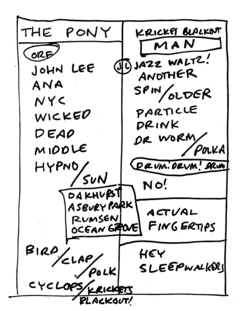 THE PONY
ORF
JOHN LEE
ANA
NYC
WICKED
DEAD
MIDDLE
HYPNO/
SUN
OAKHURST
ASBURY PARK
RUMSEN
OCEAN GROVE
BIRD/
CLAP/
POLK
CYCLOPS/KRICKETS
BLACKOUT!
KRICKET BLACKOUT
MAN
JL JAZZ WALTZ!
ANOTHER
SPIN/OLDER
PARTICLE
DRINK
DR WORM/
POLKA
DRUM! DRUM! DRUM
NO!
ACTUAL
FINGERTIPS
HEY
SLEEPWALKERS